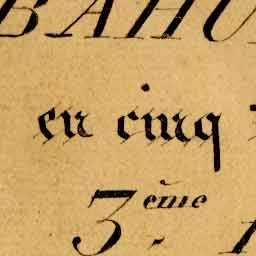 BAHU
en cinq
3.ème